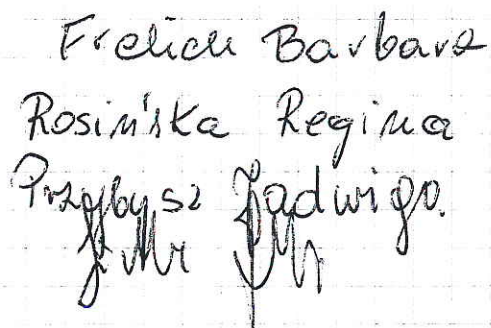 Frelich Barbara
Rosińska Regina
Przybysz Jadwiga